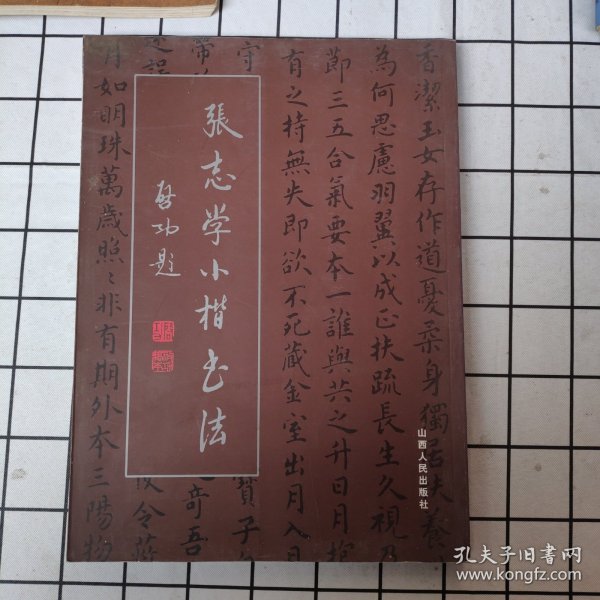 張志学小楷书法
启功题
香潔玉女存作道憂柔身獨居扶養
為何思慮羽翼以成正扶疏長生久視乃
節三五合氣要本一誰與共之升日月
有之持無失即欲不死藏金室出月入日
守
寶子
奇吾
後令蔣
月如明珠萬歲照〻非有期外本三陽物
山西人民出版社
孔夫子旧书网
www.kongfz.com